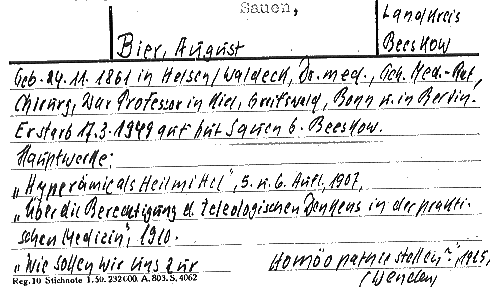 Sauen,
Landkreis
Beeskow
Bier, August
Geb. 24.11.1861 in Helsen/Waldeck, Dr. med., Geh. Med.-Rat,
Chirurg, War Professor in Kiel, Greifswald, Bonn u. in Berlin.
Er starb 17.3.1949 auf Gut Sauen b. Beeskow.
Hauptwerke:
„Hyperämie als Heilmittel", 5. u. 6. Aufl, 1907,
„Über die Berechtigung d. teleologischen Denkens in der prakti-
schen Medizin", 1910.
„Wie sollen wir uns zur Homöopathie stellen?", 1925,
(Wenden)
Reg. 10 Stichnote 1. 50. 232000. A. 803. S. 4062